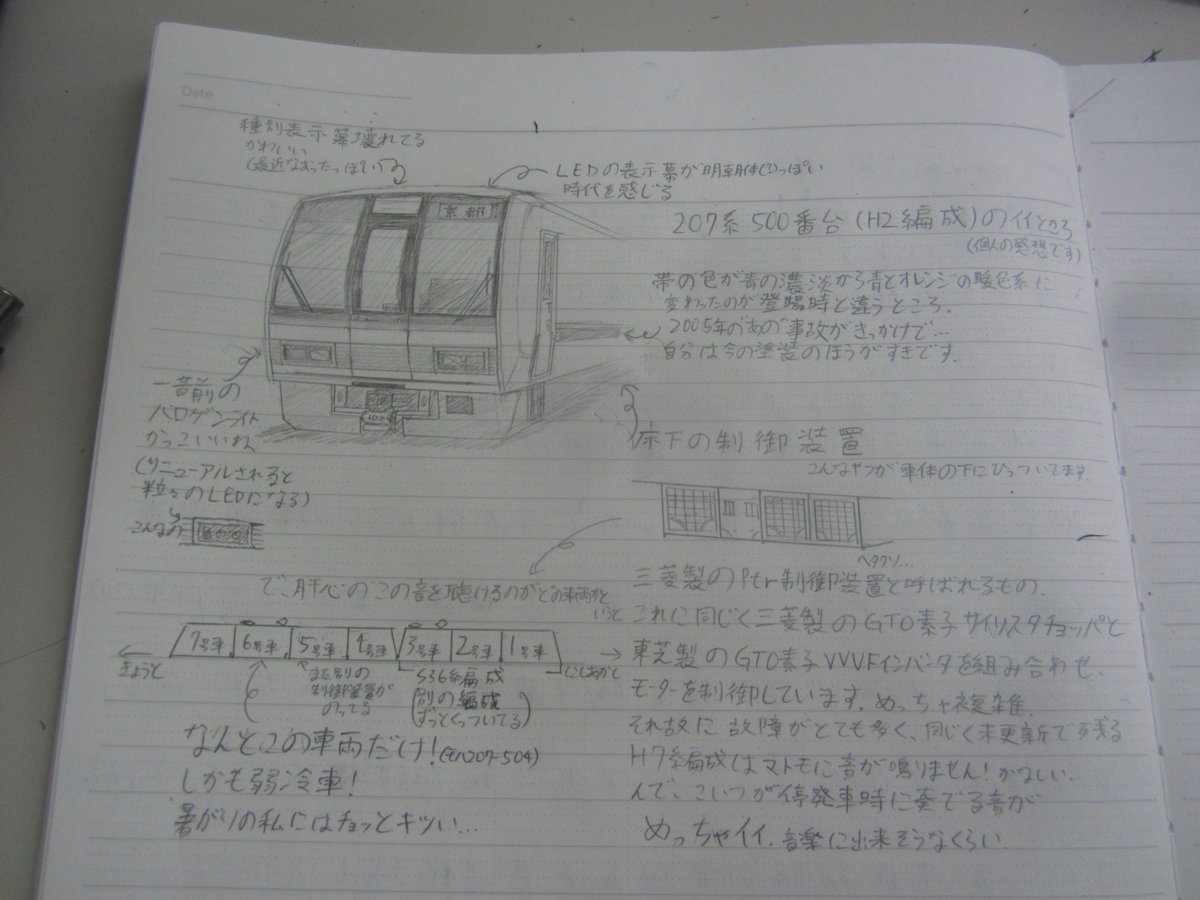 Date
種別表示幕壊れてる
かわいい
(最近なおったっぽい)
LEDの表示幕が明朝体でひっぽい
時代を感じる
京都
207系500番台(H2編成)のイイところ
(個人の感想です)
帯の色が青の濃淡から青とオレンジの暖色系に
変わったのが登場時と違うところ.
2005年の"あの"事故がきっかけで…
自分は今の塗装のほうがすきです.
一昔前の
ハロゲンライト
かっこいいね
(リニューアルされると
粒々のLEDになる)
こんなの
床下の制御装置
こんなやつが車体の下にひっついてます.
ヘタクソ…
三菱製のPtr制御装置と呼ばれるもの.
これに同じく三菱製のGTO素子サイリスタチョッパと
東芝製のGTO素子VVVFインバータを組み合わせ、
モーターを制御しています. めっちゃ複雑.
それ故に故障がとても多く、同じく未更新で残る
H7編成はマトモに音が鳴りません! かなしい…
んで、こいつが停発車時に奏でる音が
めっちゃイイ. 音楽に出来そうなくらい.
で、肝心のこの音を聴けるのがどの車両かと
いうと
7号車 6号車 5号車 4号車 3号車 2号車 1号車
きょうと
にしあかし
また別の
制御装置が
のってる
S36編成
(別の編成
ずっとくっついてる)
なんとこの車両だけ! (モハ207-504)
しかも弱冷車!
暑がりの私にはチョっとキツい…